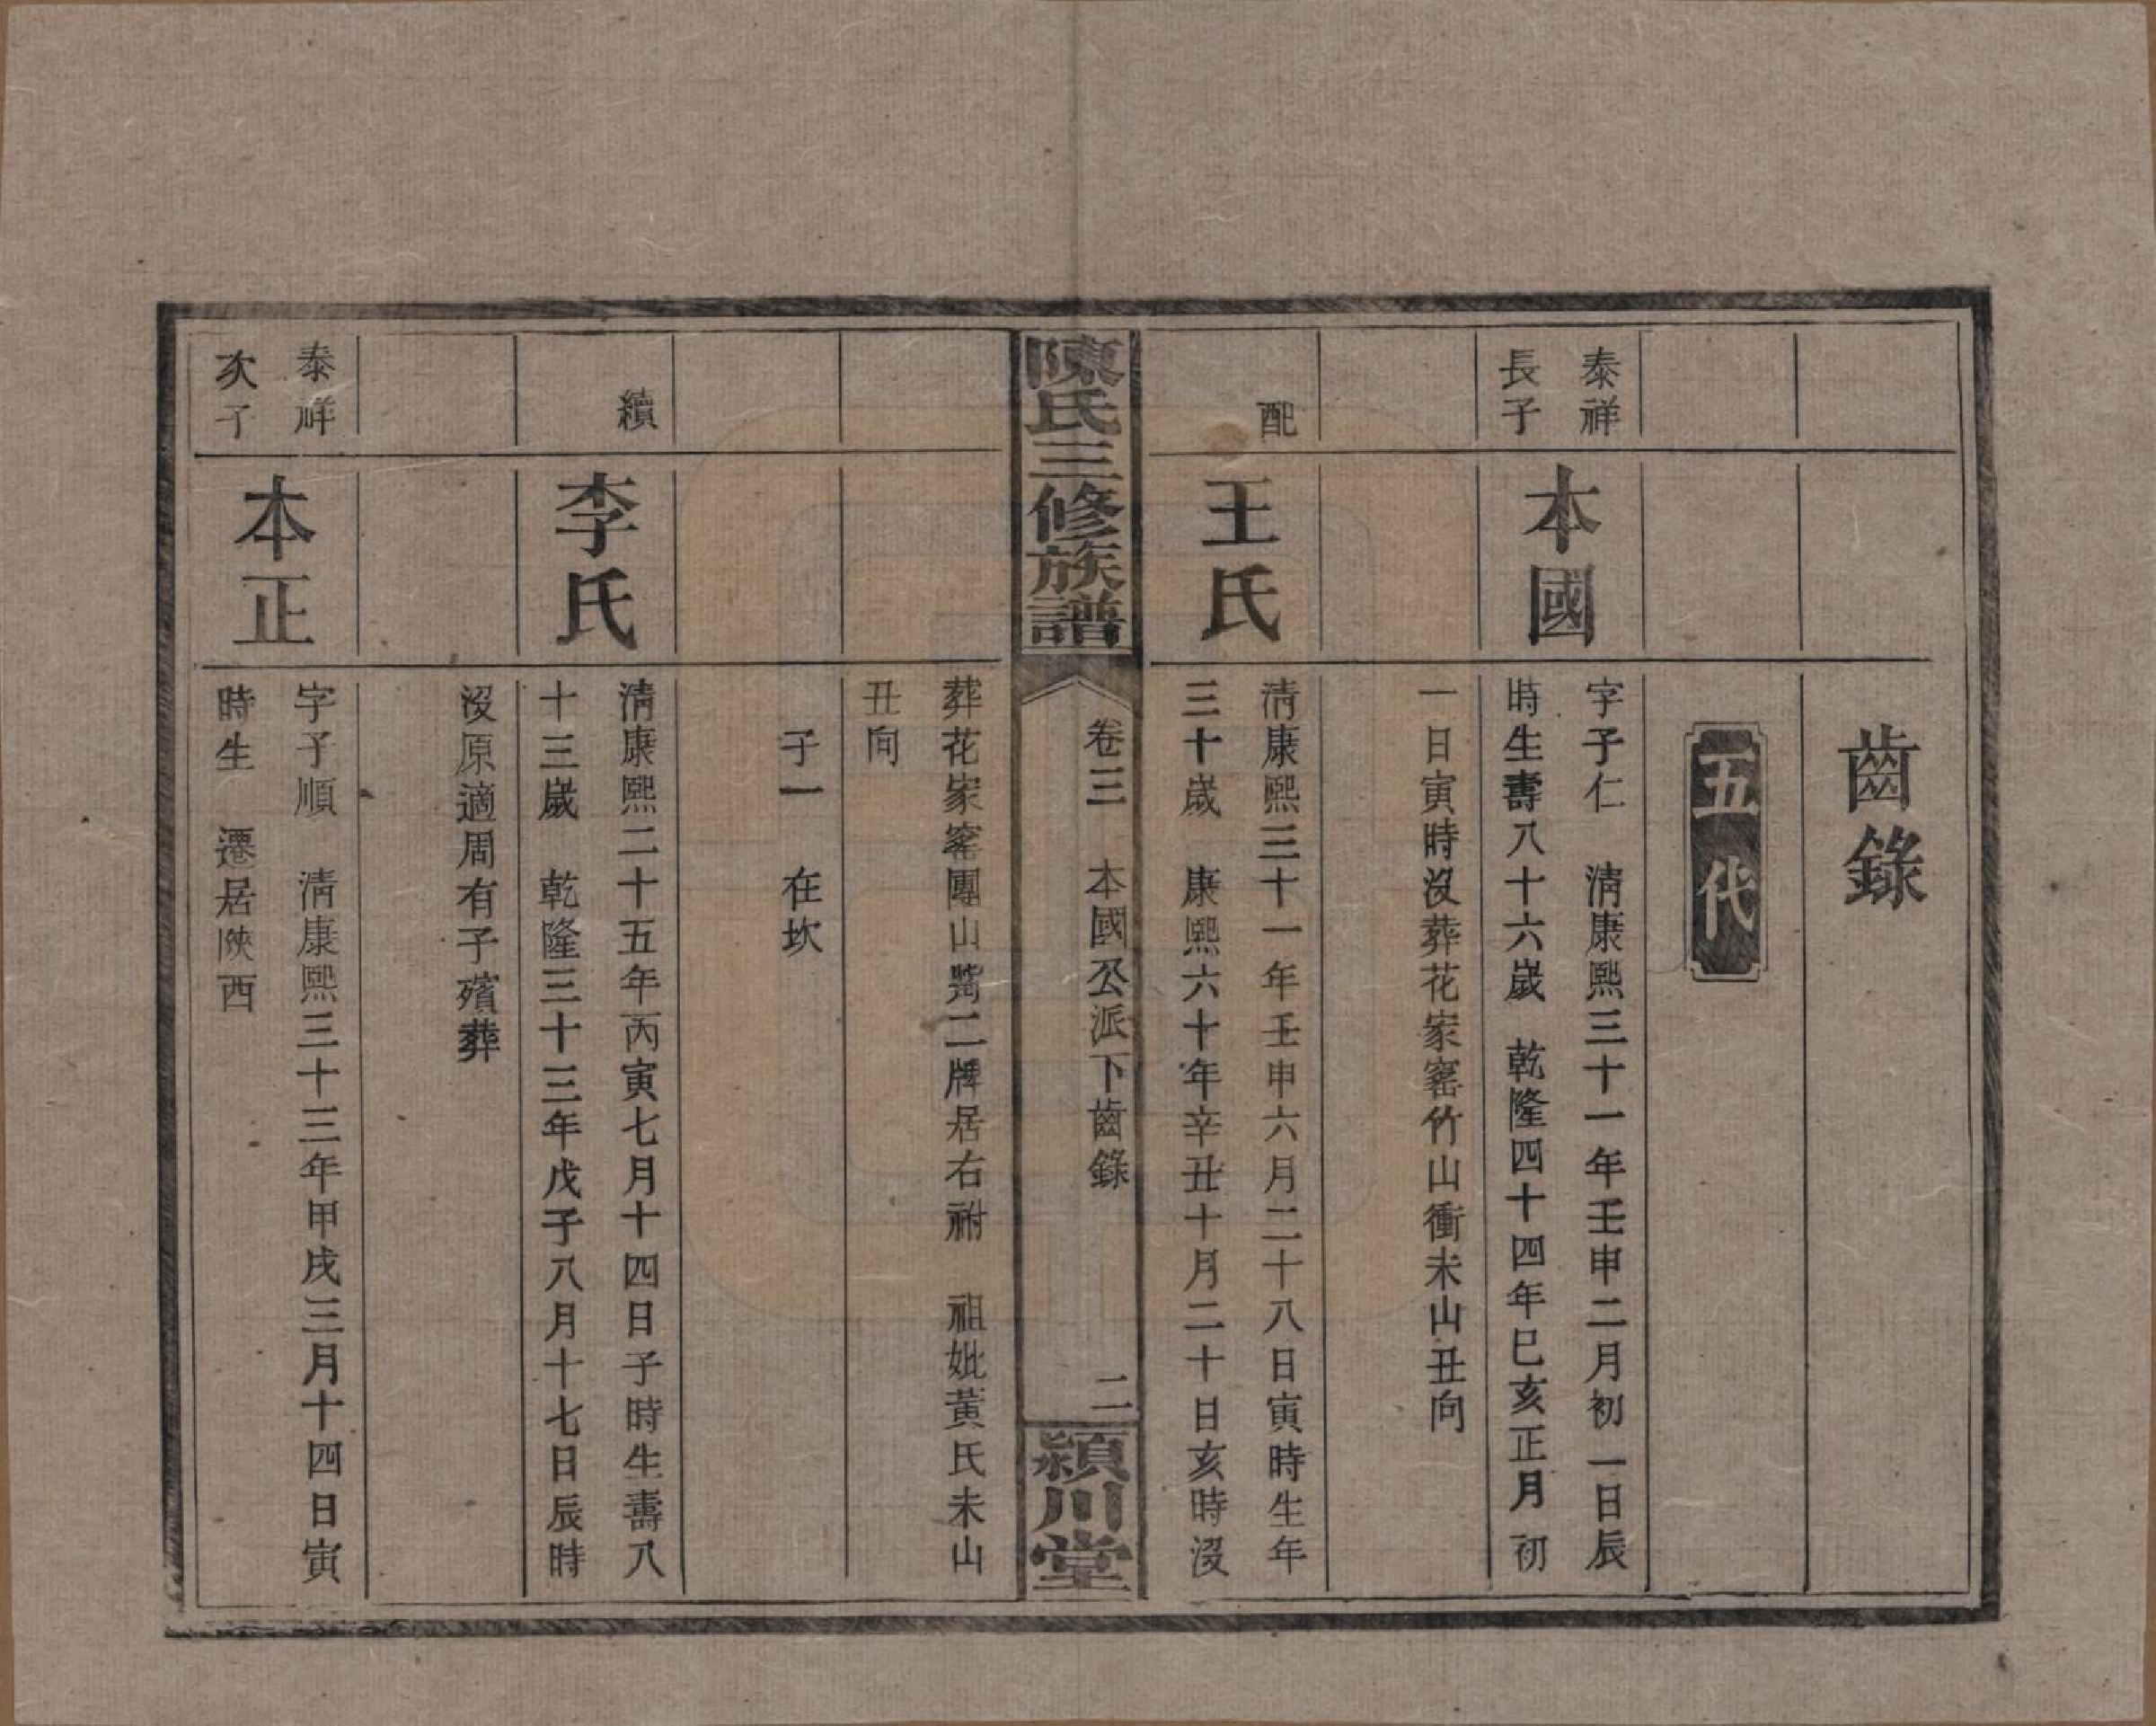 齒錄
五代
泰祥
長子
本國
字子仁　清康熙三十一年壬申二月初一日辰
時生壽八十六嵗　乾隆四十四年巳亥正月初
一日寅時沒葬花家窰竹山衝未山丑向
配
王氏
清康熙三十一年壬申六月二十八日寅時生年
三十嵗　康熙六十年辛丑十月二十日亥時沒
陳氏三修族譜
卷三　本國公派下齒錄
二
潁川堂
葬花家窰團山嘴二牌居右祔　祖妣黃氏未山
丑向
子一　在坎
續
李氏
清康熙二十五年丙寅七月十四日子時生壽八
十三嵗　乾隆三十三年戊子八月十七日辰時
沒原適周有子殯葬
泰祥
次子
本正
字子順　清康熙三十三年甲戌三月十四日寅
時生　遷居陜西